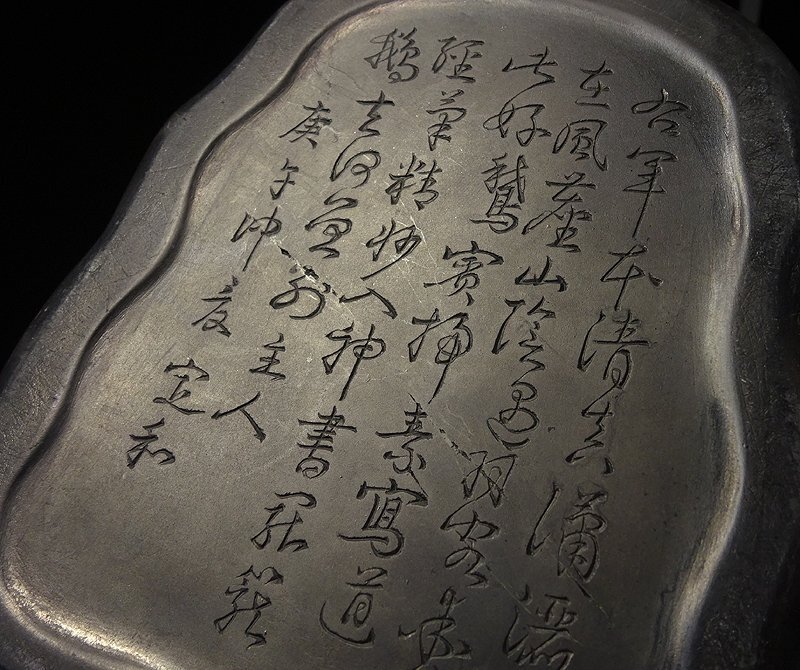 右軍本清真瀟灑
在風塵山陰遇羽客
此好鵞賓掃素寫道
經筆精妙入神書罷籠
鵝去何曾別主人
庚午仲夏定和